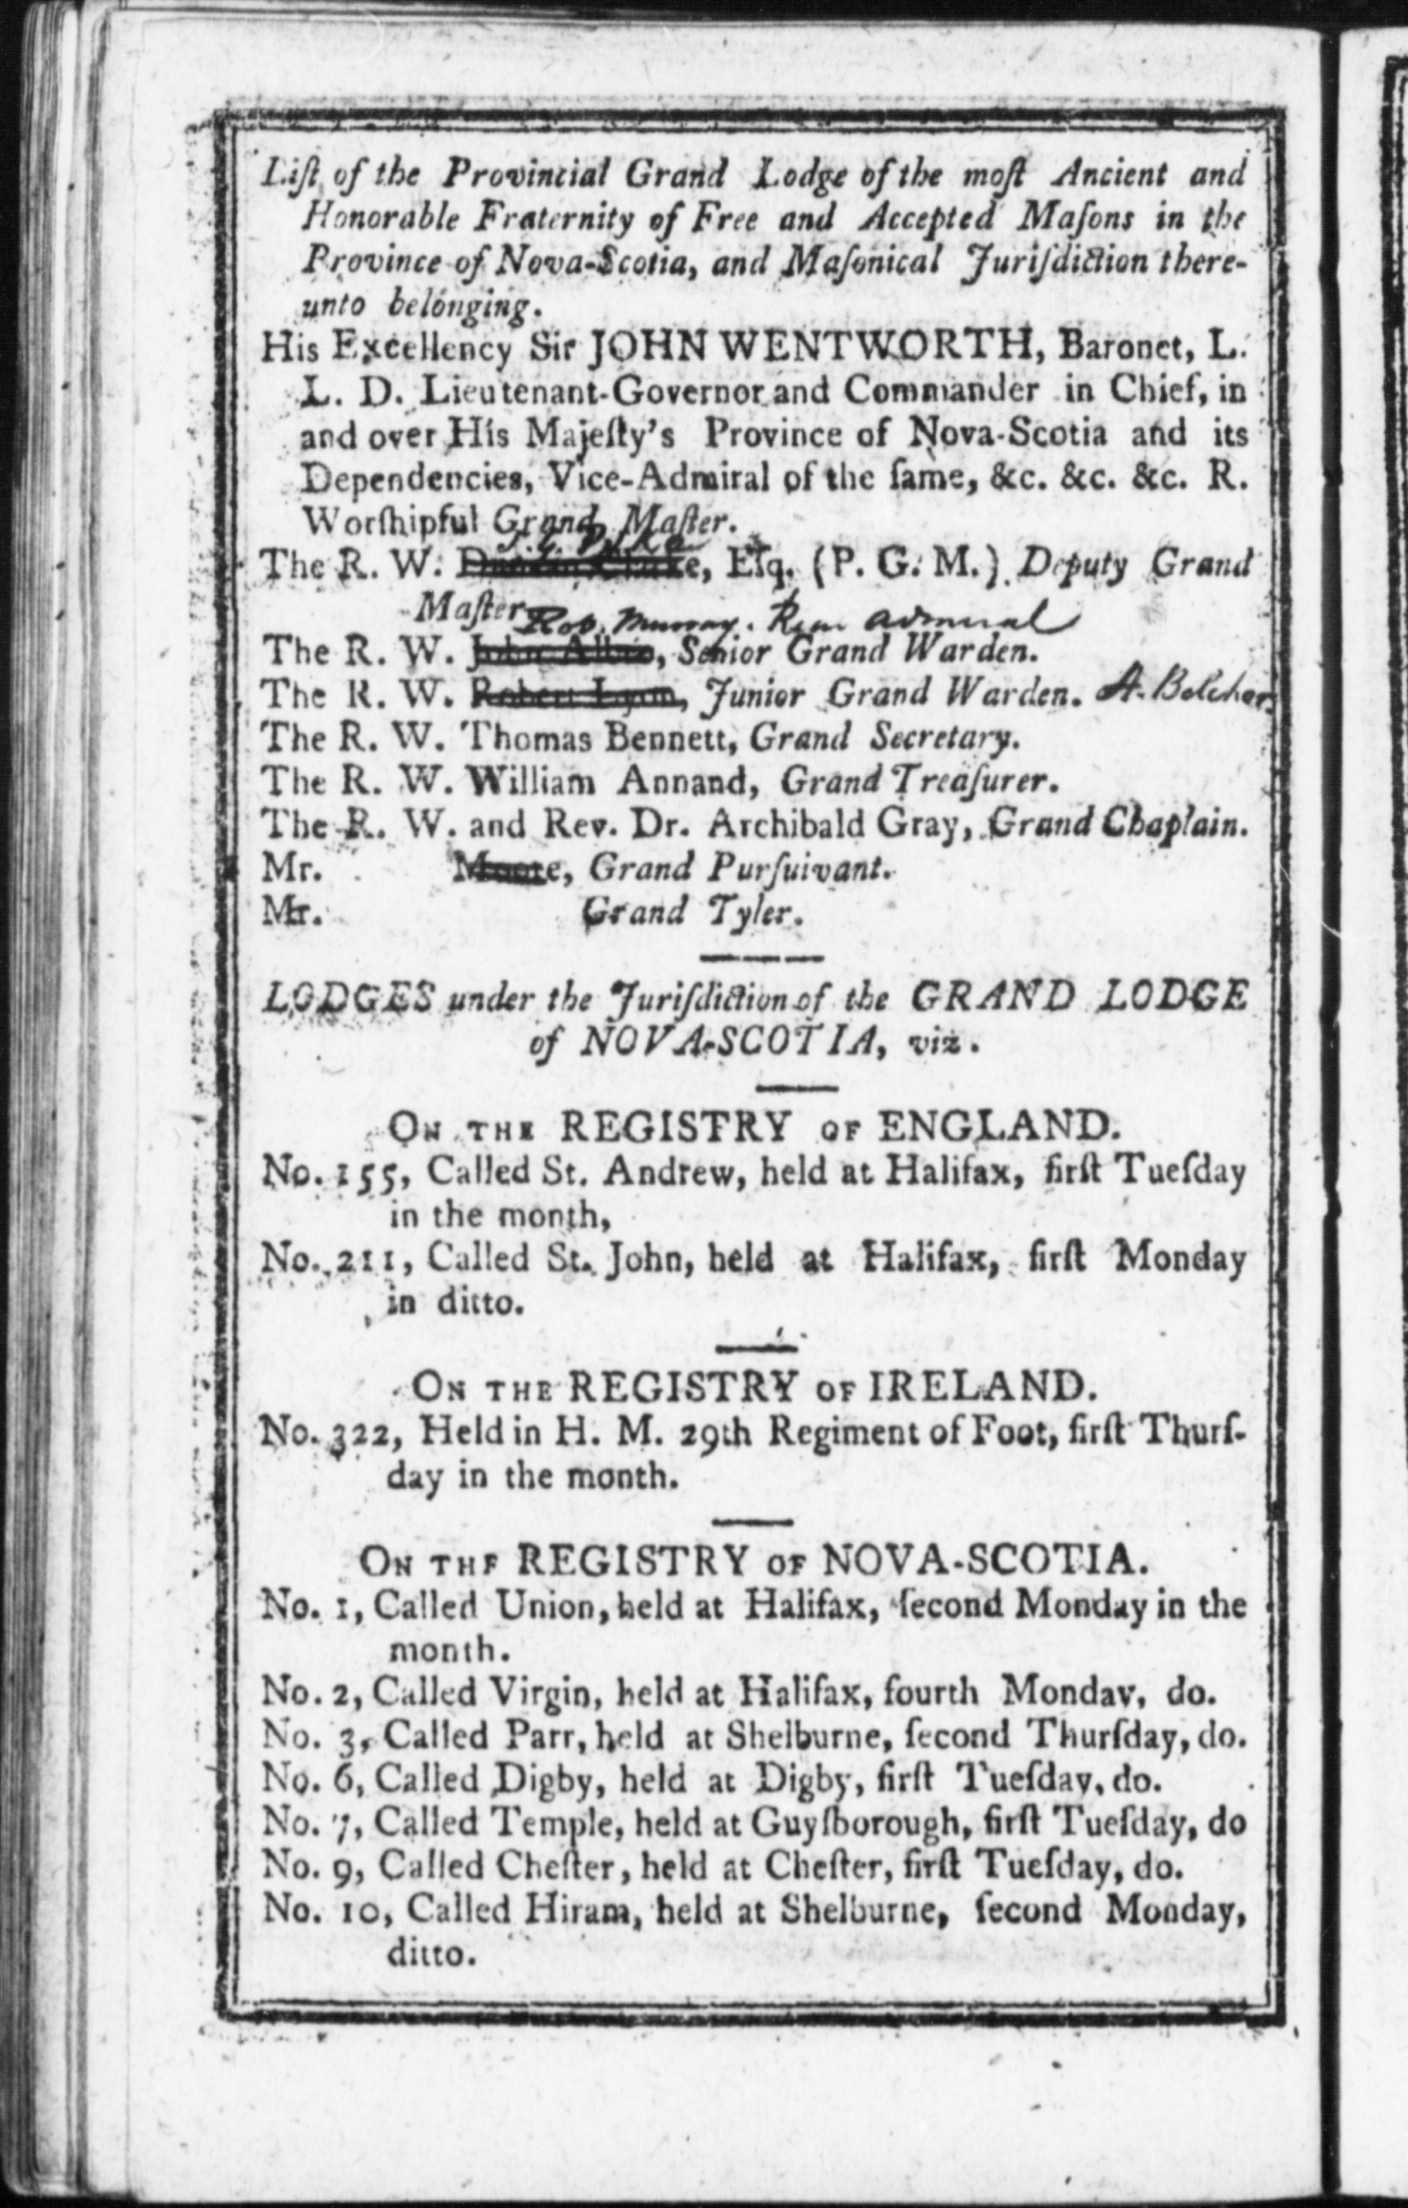 Liſt of the Provincial Grand Lodge of the moſt Ancient and
Honorable Fraternity of Free and Accepted Maſons in the
Province of Nova-Scotia, and Maſonical Juriſdiction there-
unto belonging.
His Excellency Sir JOHN WENTWORTH, Baronet, L.
L. D. Lieutenant-Governor and Commander in Chief, in
and over His Majeſty's Province of Nova-Scotia and its
Dependencies, Vice-Admiral of the ſame, &c. &c. &c. R.
Worſhipful Grand Maſter.
J. G. Pyke
The R. W. Duncan Clarke, Eſq. (P. G. M.) Deputy Grand
Maſter
Rob. Murray. Rear Admiral
The R. W. John Allen, Senior Grand Warden.
The R. W. Robert Lyon, Junior Grand Warden. A. Belcher
The R. W. Thomas Bennett, Grand Secretary.
The R. W. William Annand, Grand Treaſurer.
The R. W. and Rev. Dr. Archibald Gray, Grand Chaplain.
Mr. Moore, Grand Purſuivant.
Mr. Grand Tyler.
LODGES under the Juriſdiction of the GRAND LODGE
of NOVA-SCOTIA, viz.
ON THE REGISTRY OF ENGLAND.
No. 155, Called St. Andrew, held at Halifax, firſt Tueſday
in the month,
No. 211, Called St. John, held at Halifax, firſt Monday
in ditto.
ON THE REGISTRY OF IRELAND.
No. 322, Held in H. M. 29th Regiment of Foot, firſt Thurſ-
day in the month.
ON THE REGISTRY OF NOVA-SCOTIA.
No. 1, Called Union, held at Halifax, ſecond Monday in the
month.
No. 2, Called Virgin, held at Halifax, fourth Monday, do.
No. 3, Called Parr, held at Shelburne, ſecond Thurſday, do.
No. 6, Called Digby, held at Digby, firſt Tueſday, do.
No. 7, Called Temple, held at Guyſborough, firſt Tueſday, do
No. 9, Called Cheſter, held at Cheſter, firſt Tueſday, do.
No. 10, Called Hiram, held at Shelburne, ſecond Monday,
ditto.